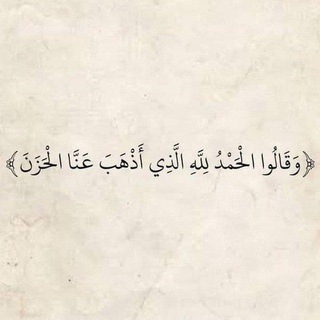 ﴿وَقَالُوا الْحَمْدُ لِلَّهِ الَّذِي أَذْهَبَ عَنَّا الْحَزَنَ﴾